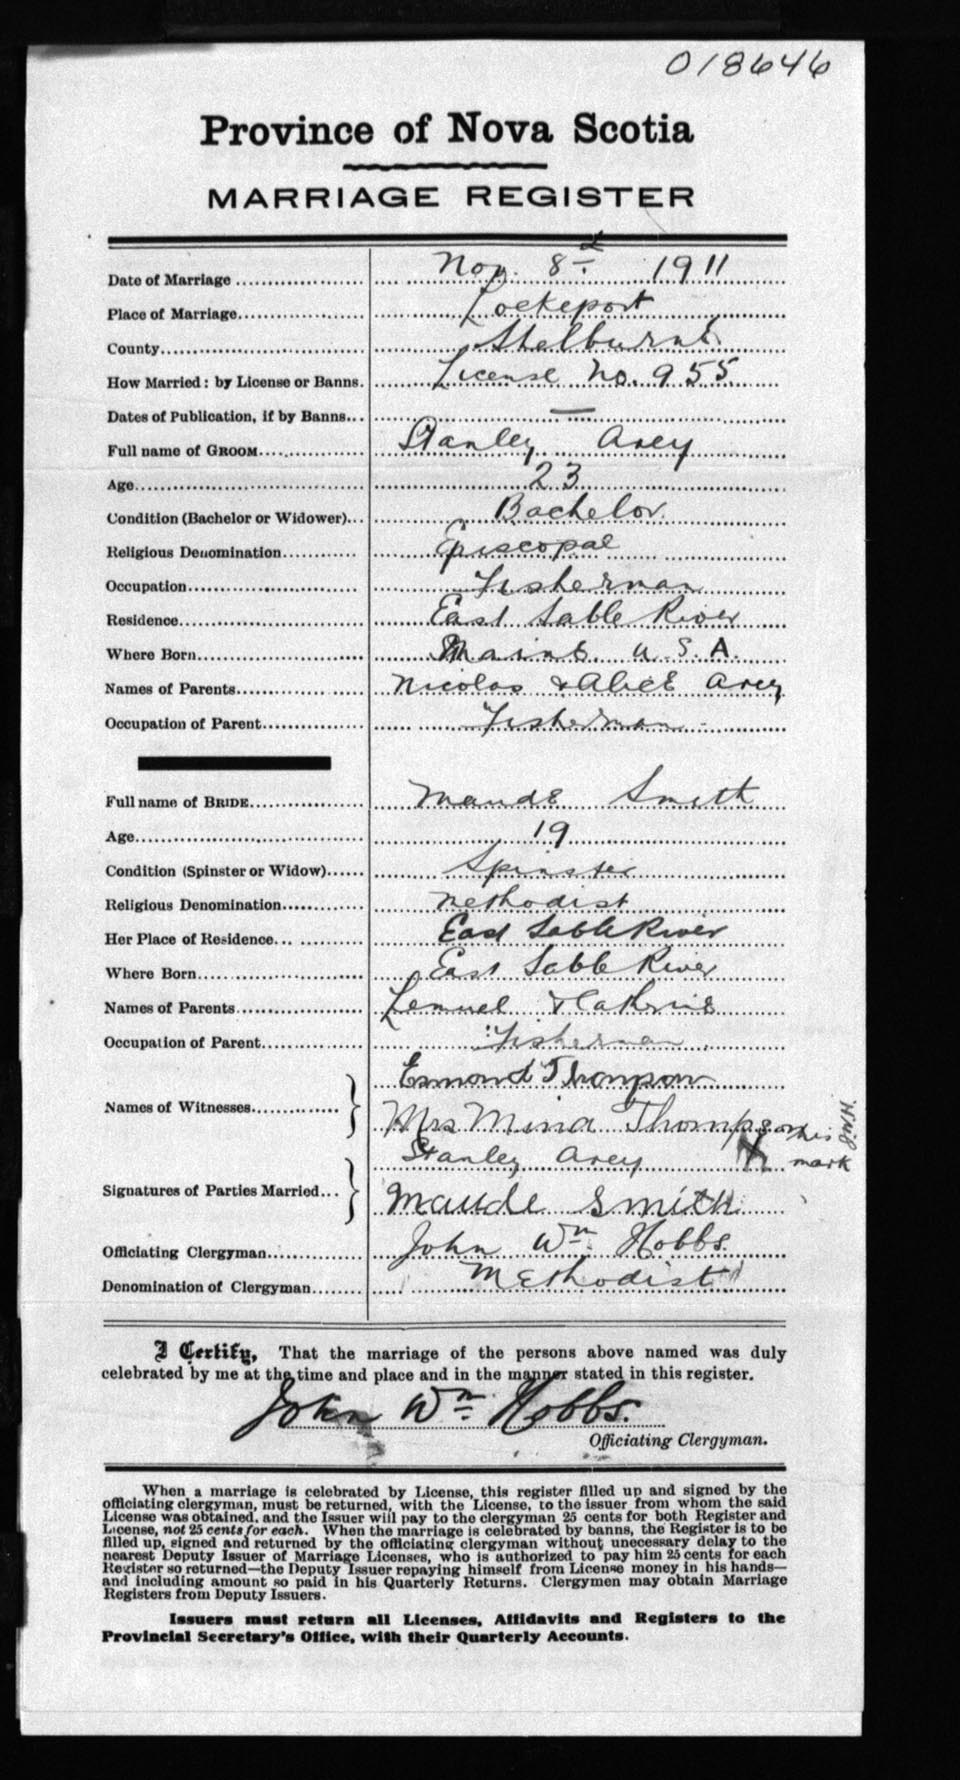 018646
Province of Nova Scotia
MARRIAGE REGISTER
Date of Marriage Nov. 8th 1911
Place of Marriage Lockeport
County Shelburne
How Married: by License or Banns. License No. 955
Dates of Publication, if by Banns —
Full name of GROOM Stanley Arey
Age 23
Condition (Bachelor or Widower) Bachelor
Religious Denomination Episcopal
Occupation Fisherman
Residence East Sable River
Where Born Maine U.S.A.
Names of Parents Nicolas & Alice Arey
Occupation of Parent Fisherman
Full name of BRIDE Maude Smith
Age 19
Condition (Spinster or Widow) Spinster
Religious Denomination Methodist
Her Place of Residence East Sable River
Where Born East Sable River
Names of Parents Lemuel & Cathrine
Occupation of Parent Fisherman
Names of Witnesses Esmond Thompson
Mrs Mina Thompson
Signatures of Parties Married Stanley Arey X his mark
Maude Smith
Officiating Clergyman John Wm Hobbs.
Denomination of Clergyman Methodist
I Certify, That the marriage of the persons above named was duly
celebrated by me at the time and place and in the manner stated in this register.
John Wm Hobbs.
Officiating Clergyman.
When a marriage is celebrated by License, this register filled up and signed by the
officiating clergyman, must be returned, with the License, to the issuer from whom the said
License was obtained, and the Issuer will pay to the clergyman 25 cents for both Register and
License, not 25 cents for each. When the marriage is celebrated by banns, the Register is to be
filled up, signed and returned by the officiating clergyman without unnecessary delay to the
nearest Deputy Issuer of Marriage Licenses, who is authorized to pay him 25 cents for each
Register so returned—the Deputy Issuer repaying himself from License money in his hands—
and including amount so paid in his Quarterly Returns. Clergymen may obtain Marriage
Registers from Deputy Issuers.
Issuers must return all Licenses, Affidavits and Registers to the
Provincial Secretary's Office, with their Quarterly Accounts.